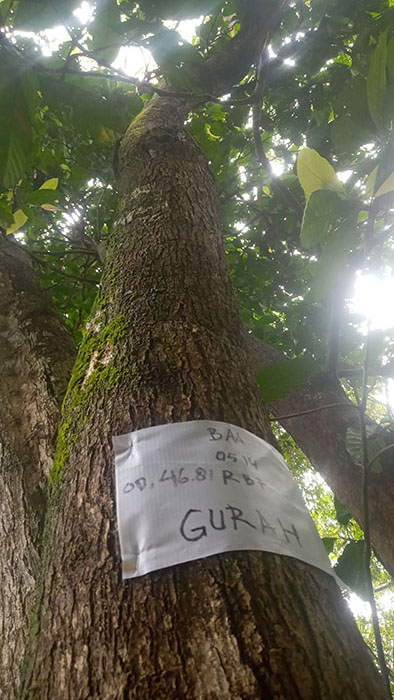 BAA
0514
OD. 46.81 RB7
GURAH